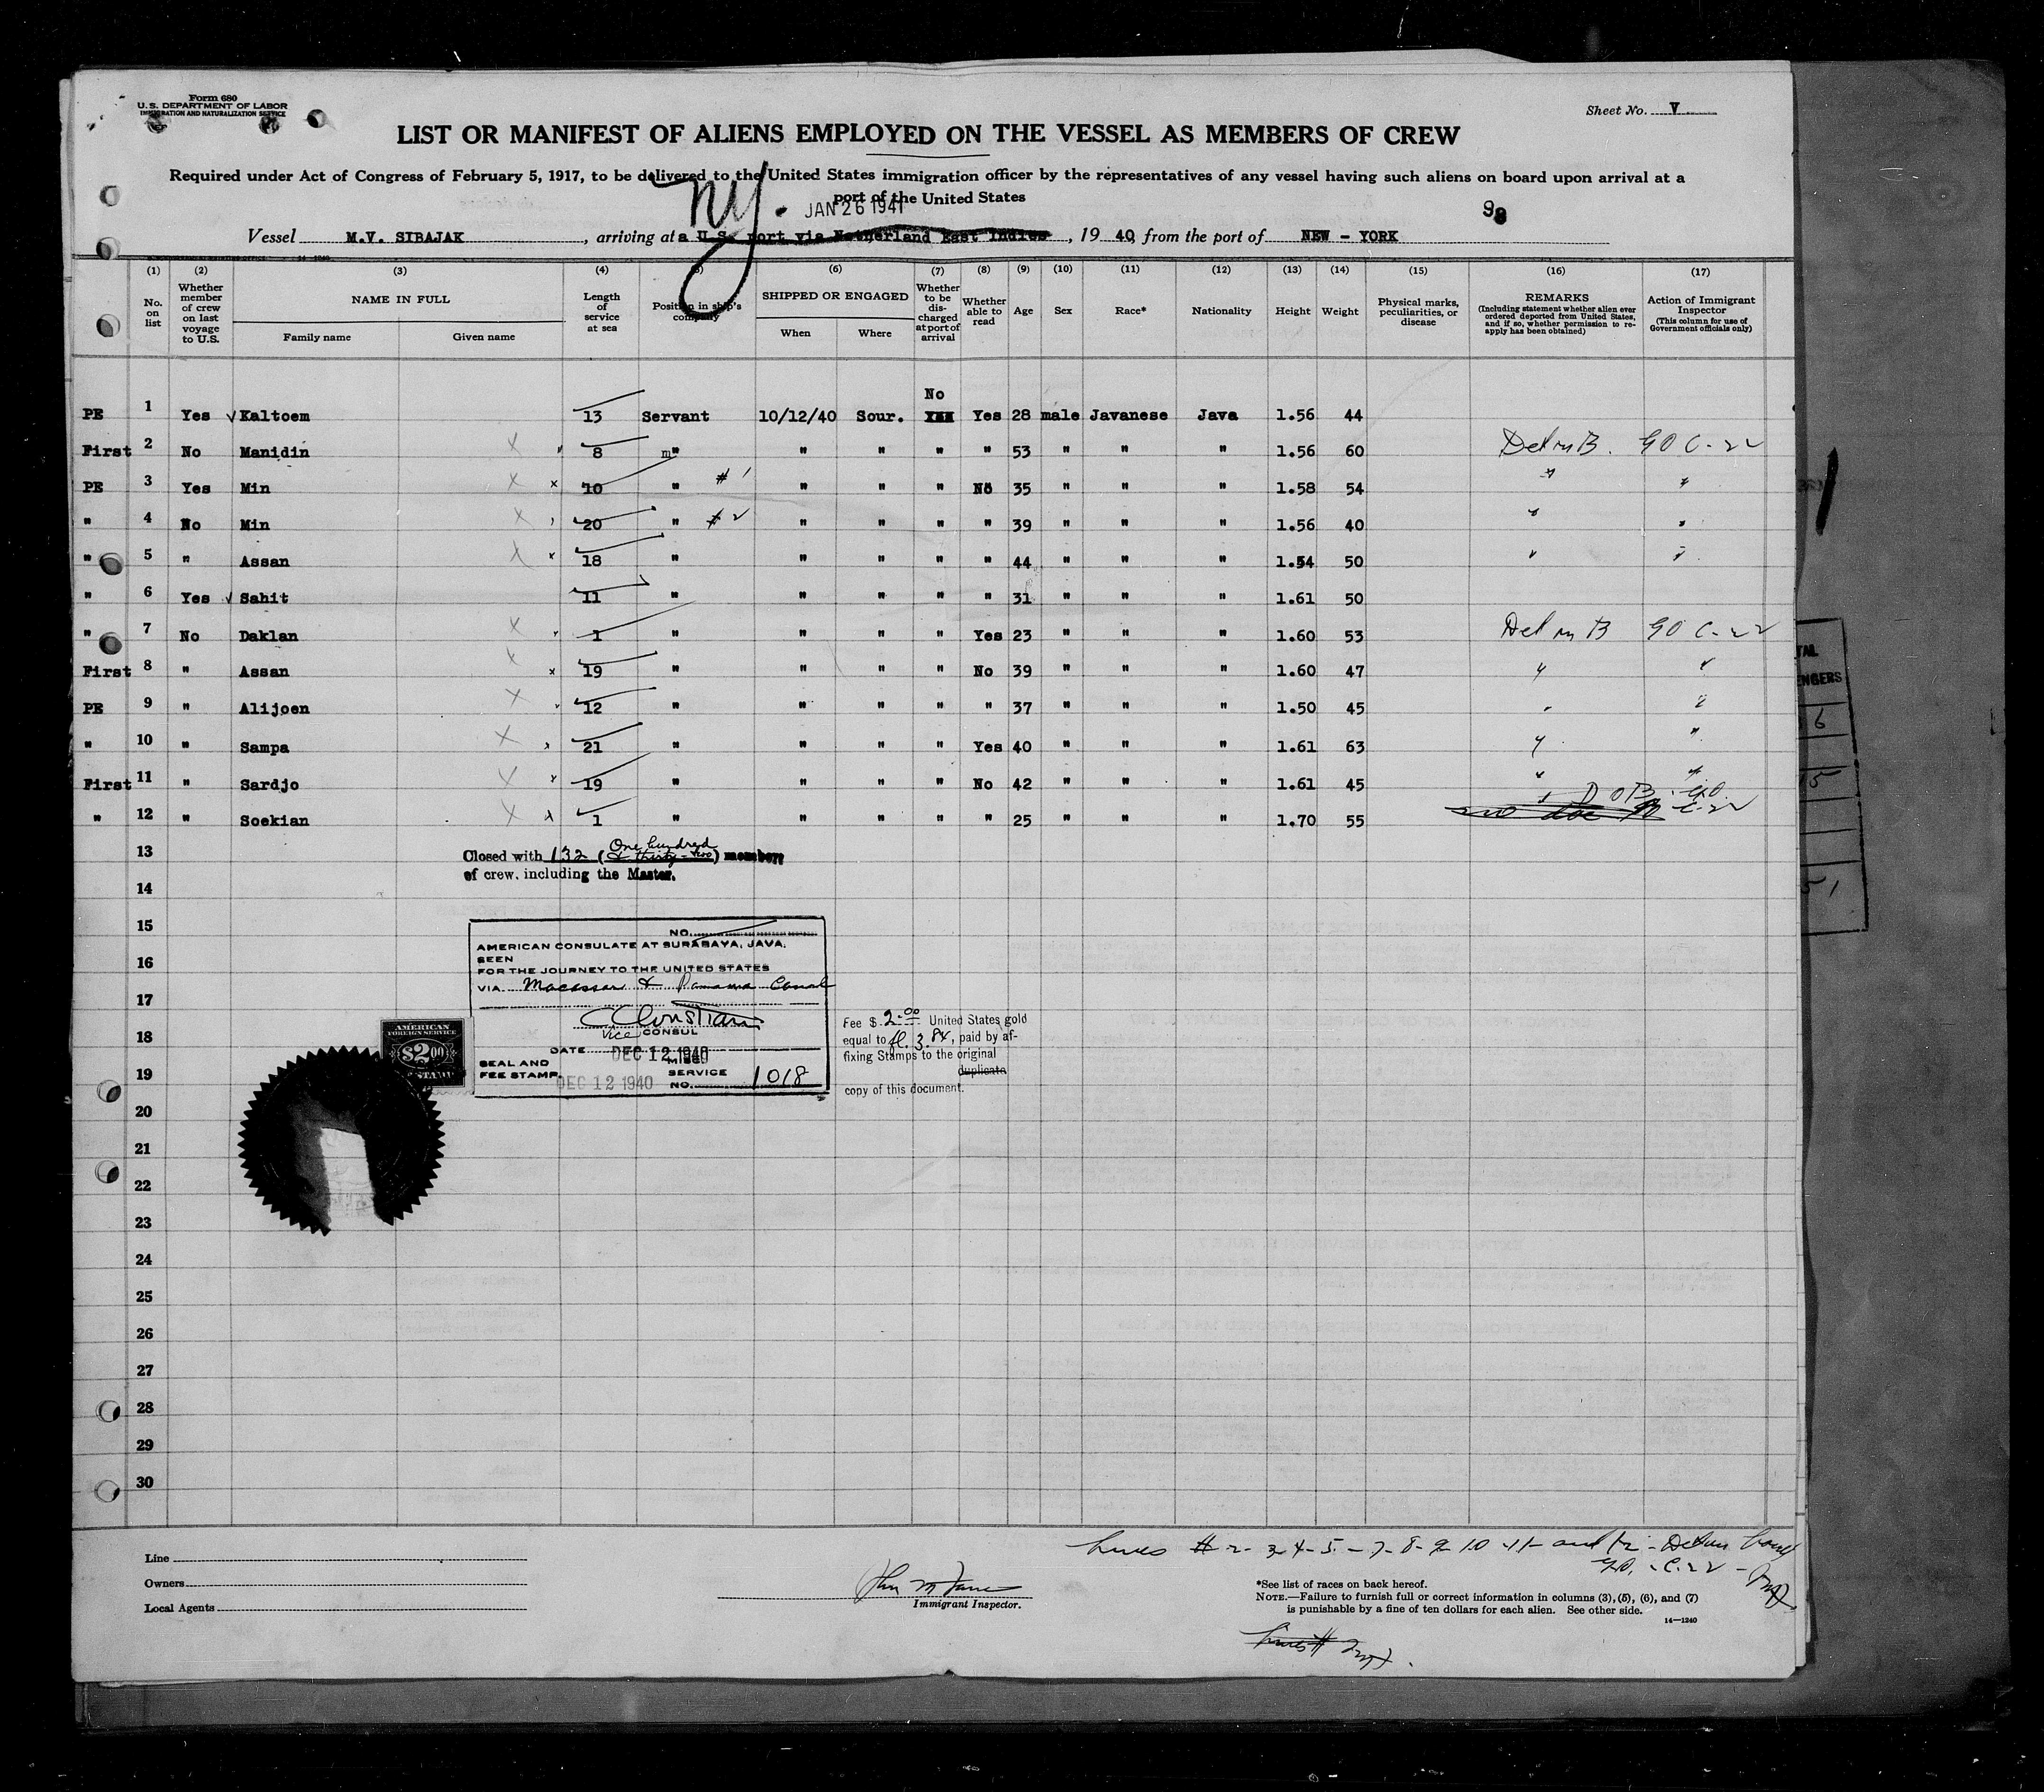 Form 680
U. S. DEPARTMENT OF LABOR
IMMIGRATION AND NATURALIZATION SERVICE
Sheet No. V
LIST OR MANIFEST OF ALIENS EMPLOYED ON THE VESSEL AS MEMBERS OF CREW
Required under Act of Congress of February 5, 1917, to be delivered to the United States immigration officer by the representatives of any vessel having such aliens on board upon arrival at a
port of the United States
NY. JAN 26 1941
98
Vessel M.V. SIBAJAK, arriving at a U.S. port via Netherland East Indies, 19 40, from the port of NEW - YORK
(1) (2) (3) (4) (5) (6) (7) (8) (9) (10) (11) (12) (13) (14) (15) (16) (17)
No. on list
Whether member of crew on last voyage to U.S.
NAME IN FULL
Family name Given name
Length of service at sea
Position in ship's company
SHIPPED OR ENGAGED
When Where
Whether to be discharged at port of arrival
Whether able to read
Age Sex Race* Nationality Height Weight
Physical marks, peculiarities, or disease
REMARKS
(Including statement whether alien ever ordered deported from United States, and if so, whether permission to re-apply has been obtained)
Action of Immigrant Inspector
(This column for use of Government officials only)
No
PE 1 Yes √ Kaltoem 13 Servant 10/12/40 Sour. Yes 28 male Javanese Java 1.56 44
First 2 No Manidin x 8 m" " " " " 53 " " " 1.56 60 Det on B. GO C-22
PE 3 Yes Min x x 10 " #1 " " " No 35 " " " 1.58 54 " "
" 4 No Min x 20 " #2 " " " " 39 " " " 1.56 40 " "
" 5 " Assan x x 18 " " " " " 44 " " " 1.54 50 " "
" 6 Yes √ Sahit 11 " " " " " 31 " " " 1.61 50
" 7 No Daklan x 1 " " " " Yes 23 " " " 1.60 53 Det on B GO C-22
First 8 " Assan x x 19 " " " " No 39 " " " 1.60 47 " "
PE 9 " Alijoen x 12 " " " " " 37 " " " 1.50 45 " "
" 10 " Sampa x x 21 " " " " Yes 40 " " " 1.61 63 " "
First 11 " Sardjo x x 19 " " " " No 42 " " " 1.61 45 " "
" 12 " Soekian x x 1 " " " " " 25 " " " 1.70 55 " D O B. GO. C-22
13
Closed with 132 (One hundred & thirty-two) members
of crew, including the Master.
14
15
16
17
18
19
20
21
22
23
24
25
26
27
28
29
30
NO.
AMERICAN CONSULATE AT SURABAYA, JAVA.
SEEN
FOR THE JOURNEY TO THE UNITED STATES
VIA Macassar & Panama Canal
Vice CONSUL
DATE DEC 12 1940
SEAL AND
FEE STAMP. DEC 12 1940
MISC. SERVICE NO. 1018
AMERICAN
FOREIGN SERVICE
$2.00
STAMP
Fee $ 2.00 United States gold
equal to fl. 3.84, paid by af-
fixing Stamps to the original
duplicate
copy of this document.
TAL
ENGERS
6
15
51
Lines # 2-3-4-5-7-8-9-10-11- and 12-
G.O. - C-22 -
Line
Owners
Local Agents
Immigrant Inspector.
*See list of races on back hereof.
NOTE.—Failure to furnish full or correct information in columns (3), (5), (6), and (7)
is punishable by a fine of ten dollars for each alien. See other side.
14—1240
Lines #